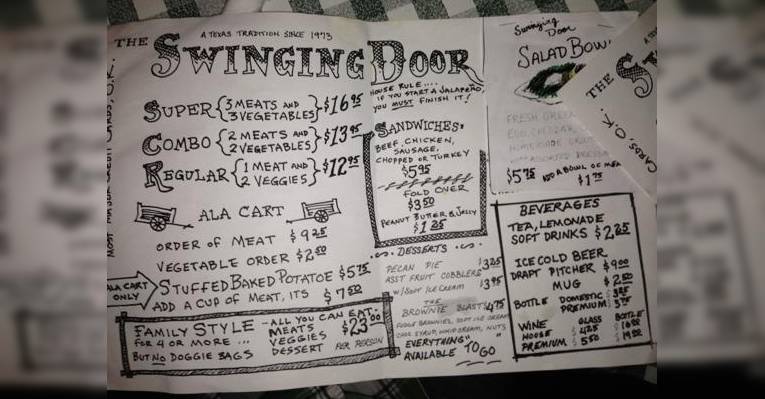 A TEXAS TRADITION SINCE 1973
THE SWINGING DOOR
MOST MAJOR CREDIT CARDS, O.K.
SUPER {3 MEATS AND 3 VEGETABLES} $16.95
COMBO {2 MEATS AND 2 VEGETABLES} $13.95
REGULAR {1 MEAT AND 2 VEGGIES} $12.95
ALA CART
ORDER OF MEAT $9.25
VEGETABLE ORDER $2.50
ALA CART ONLY
STUFFED BAKED POTATOE $5.75
ADD A CUP OF MEAT, ITS $7.50
FAMILY STYLE
FOR 4 OR MORE ...
BUT NO DOGGIE BAGS
- ALL YOU CAN EAT -
MEATS
VEGGIES
DESSERT
$23.00
PER PERSON
HOUSE RULE....
IF YOU START A JALAPEÑO,
YOU MUST FINISH IT!
SANDWICHES:
BEEF, CHICKEN,
SAUSAGE,
CHOPPED OR TURKEY
$5.95
FOLD OVER
$3.50
PEANUT BUTTER & JELLY
$1.25
DESSERTS
PECAN PIE $3.25
ASST FRUIT COBBLERS
W/SOFT ICE CREAM $3.95
THE
BROWNIE BLAST $4.75
FUDGE BROWNIES, SOFT ICE CREAM
CHOC SYRUP, WHIP CREAM, NUTS
"EVERYTHING"
AVAILABLE TO GO
Swinging
Door
SALAD BOWL
FRESH GREEN
EGG, CHEDDAR,
HOMEMADE
$5.75 ADD A BOWL OF MEAT
$1.75
BEVERAGES
TEA, LEMONADE
SOFT DRINKS $2.25
ICE COLD BEER
DRAFT PITCHER $9.00
MUG $2.50
BOTTLE DOMESTIC
PREMIUM
WINE GLASS BOTTLE
HOUSE
PREMIUM 5.50
A TEXAS
THE S
CARDS, O.K.